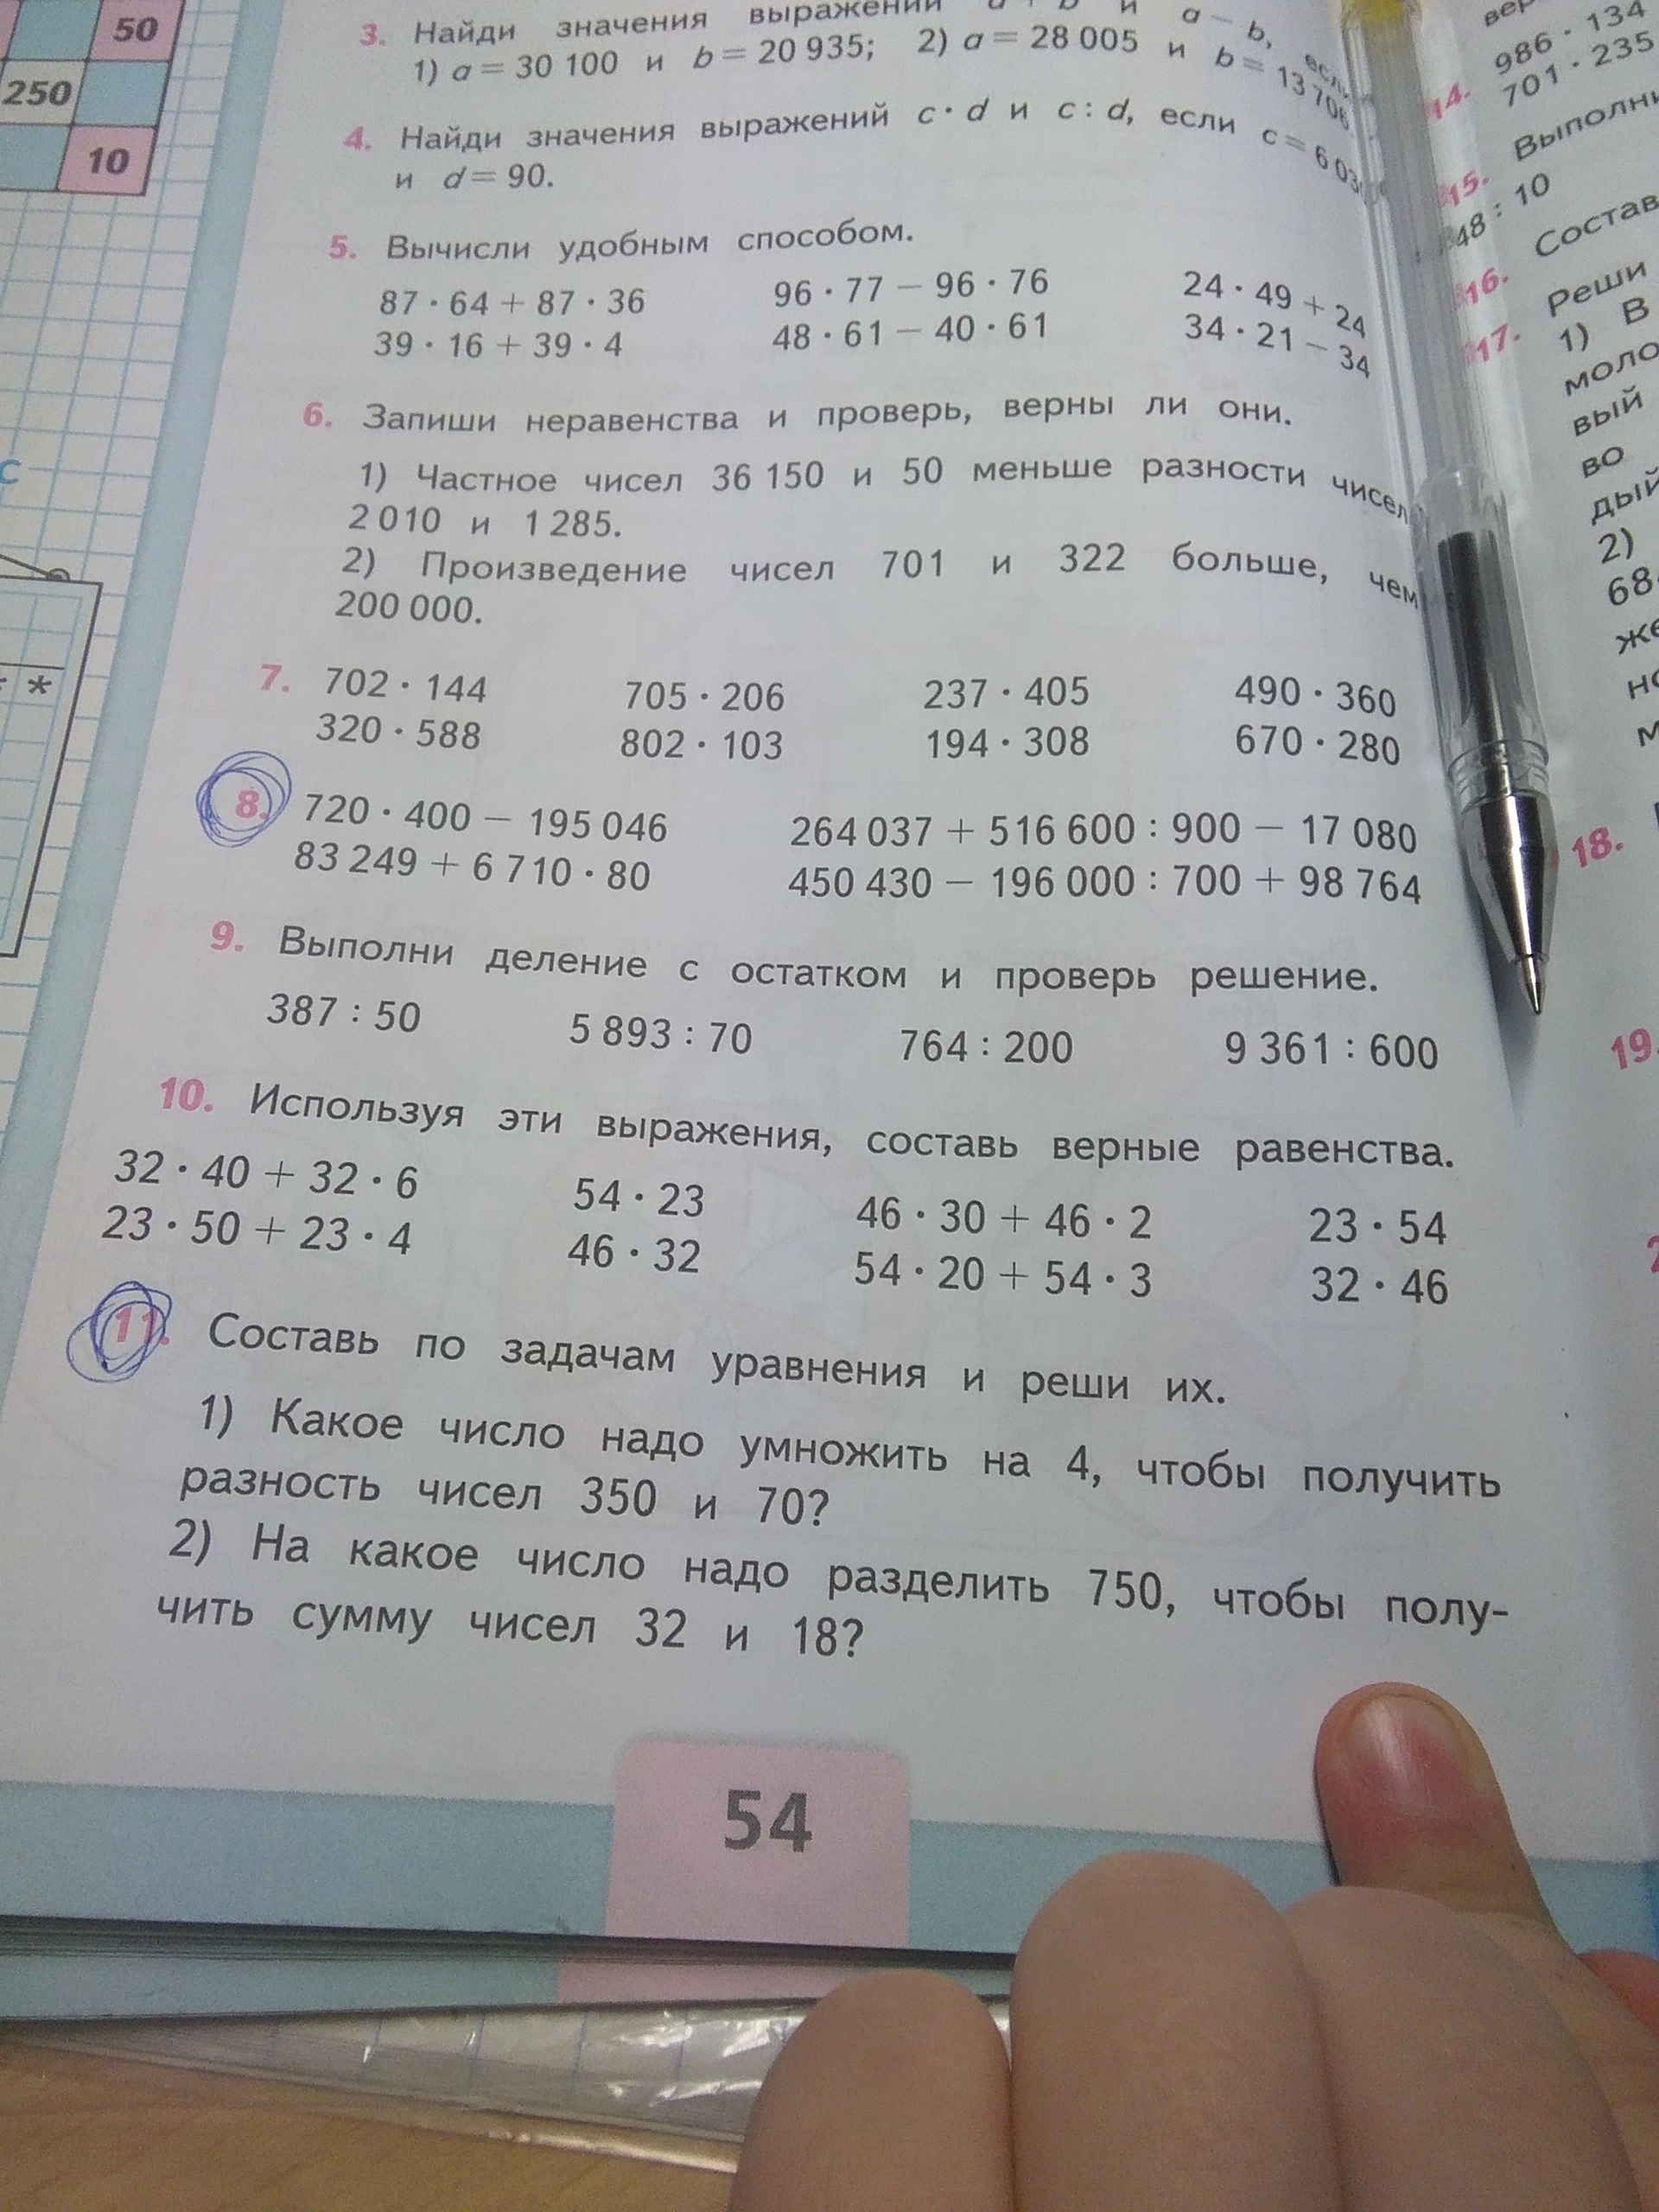 50
250
10
С
*
3. Найди значения выражений а + b и а − b, если
1) a = 30 100 и b = 20 935; 2) a = 28 005 и b = 13 706
4. Найди значения выражений c · d и c : d, если c = 6 030
и d = 90.
5. Вычисли удобным способом.
87 · 64 + 87 · 36 96 · 77 − 96 · 76 24 · 49 + 24
39 · 16 + 39 · 4 48 · 61 − 40 · 61 34 · 21 − 34
6. Запиши неравенства и проверь, верны ли они.
1) Частное чисел 36 150 и 50 меньше разности чисел
2 010 и 1 285.
2) Произведение чисел 701 и 322 больше, чем
200 000.
7. 702 · 144 705 · 206 237 · 405 490 · 360
320 · 588 802 · 103 194 · 308 670 · 280
8. 720 · 400 − 195 046 264 037 + 516 600 : 900 − 17 080
83 249 + 6 710 · 80 450 430 − 196 000 : 700 + 98 764
9. Выполни деление с остатком и проверь решение.
387 : 50 5 893 : 70 764 : 200 9 361 : 600
10. Используя эти выражения, составь верные равенства.
32 · 40 + 32 · 6 54 · 23 46 · 30 + 46 · 2 23 · 54
23 · 50 + 23 · 4 46 · 32 54 · 20 + 54 · 3 32 · 46
11. Составь по задачам уравнения и реши их.
1) Какое число надо умножить на 4, чтобы получить
разность чисел 350 и 70?
2) На какое число надо разделить 750, чтобы полу-
чить сумму чисел 32 и 18?
54
986 · 134
14. 701 · 235
15. Выполни
48 : 10
16. Состав
17. Реши
1) В
моло
вый
во
дый
2)
68
же
но
м
18.
19.